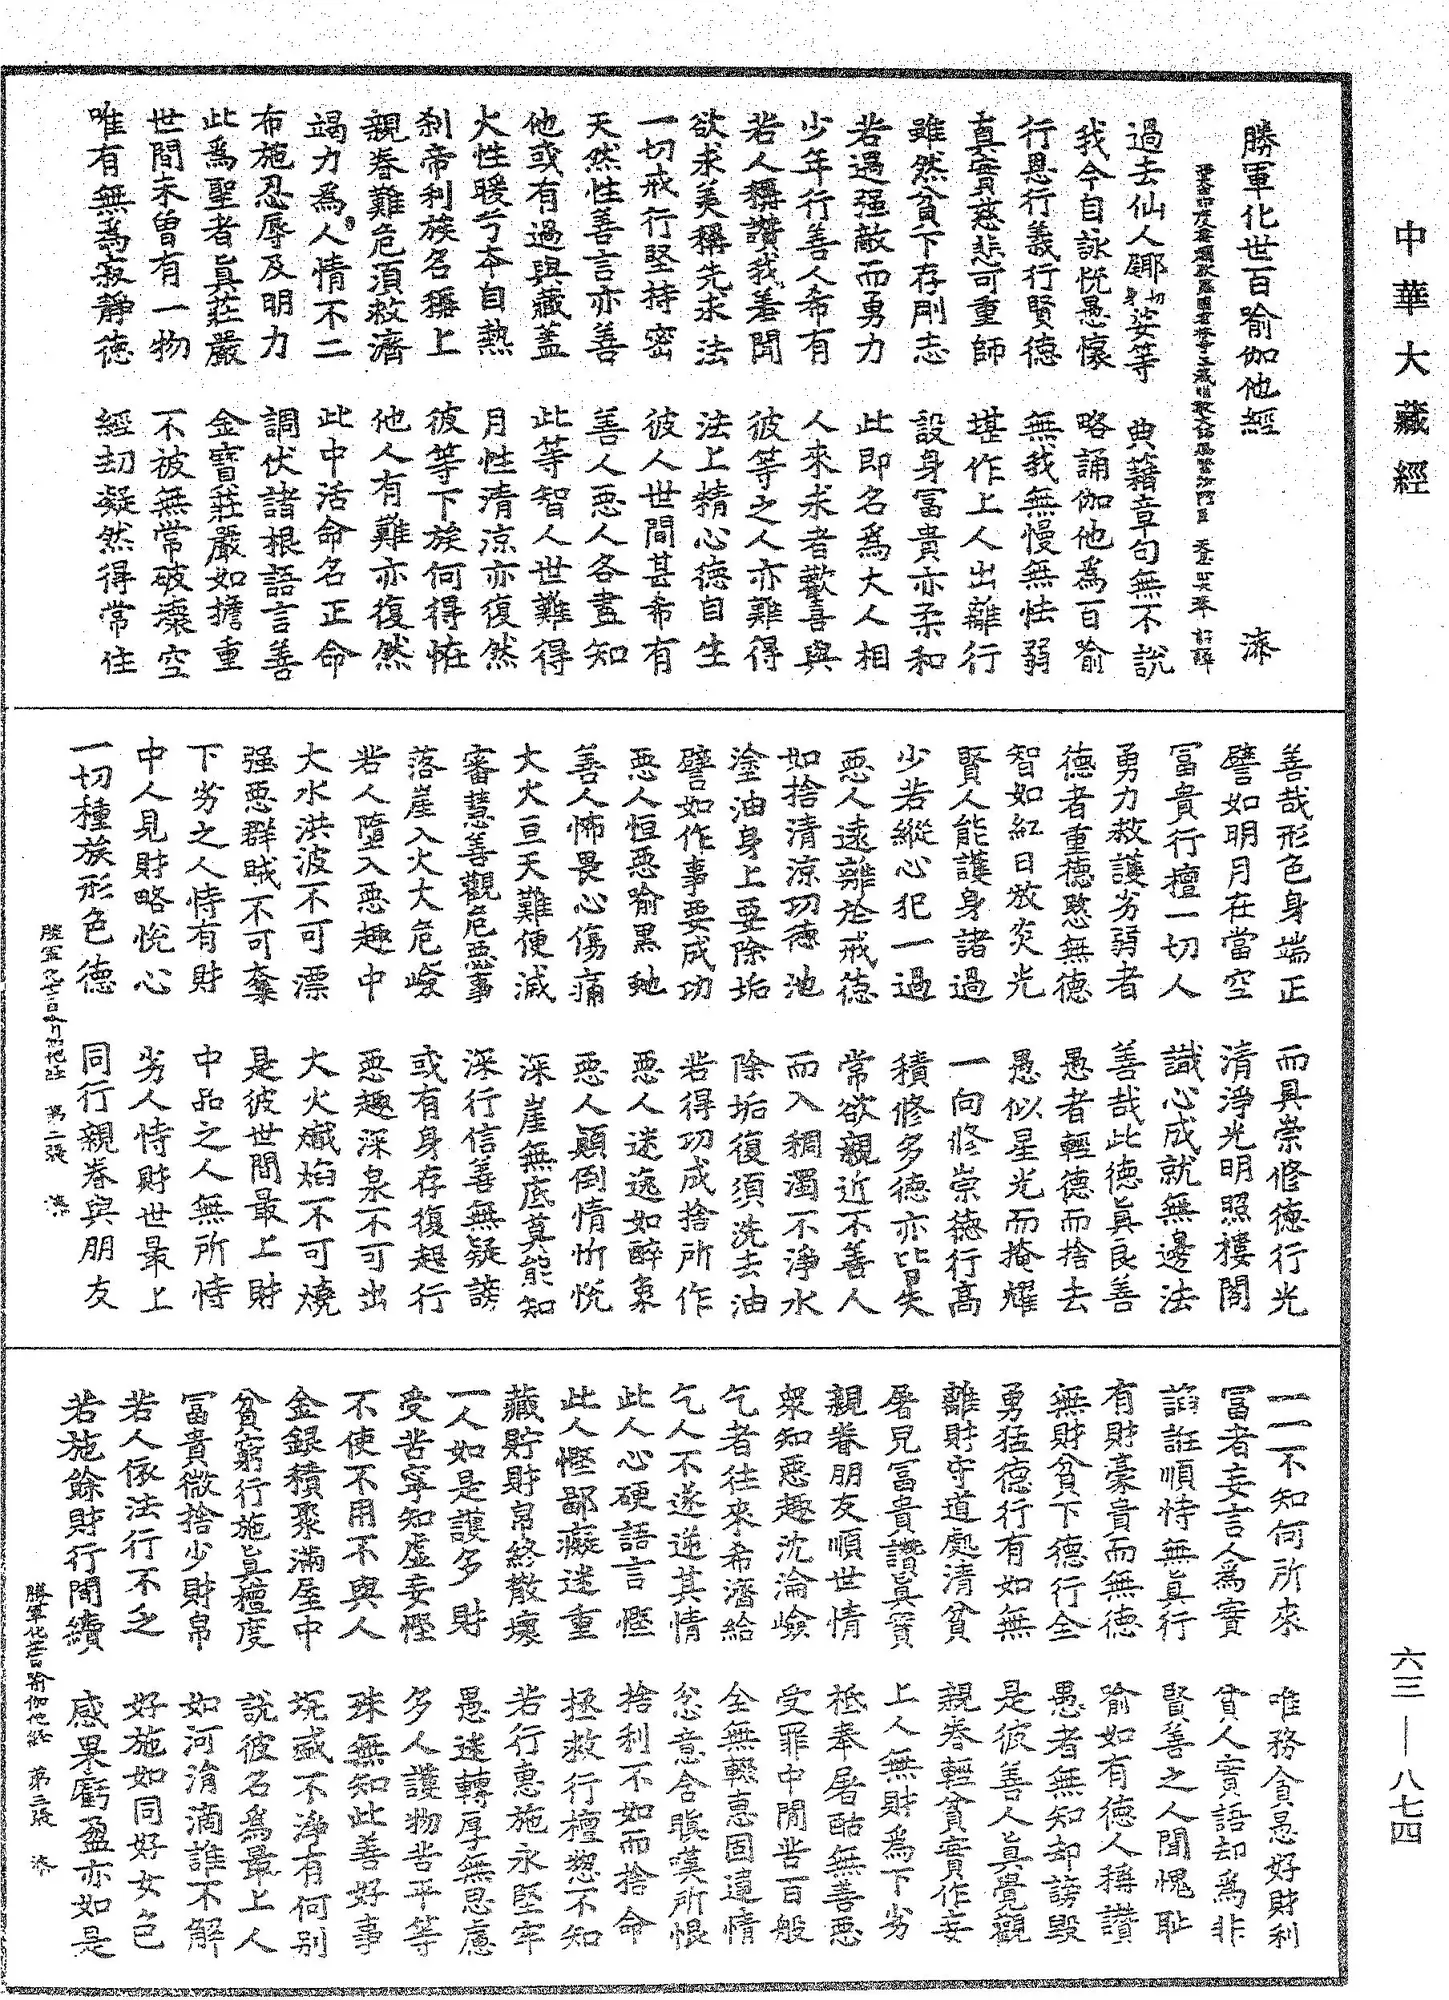 中華大藏經
六三—八七四
勝軍化世百喻伽他經 漆
奉 詔譯
過去仙人切身娑等 典籍章句無不說
我今自詠恱愚懷 略誦伽他為百喻
行恩行義行賢德 無我無慢無怯弱
真實慈悲可重師 堪作上人出離行
雖然貧下存剛志 設身冨貴亦柔和
若遇强敵而勇力 此即名為大人相
少年行善人希有 人來求者歡喜與
若人稱讚我羞聞 彼等之人亦難得
欲求美稱先求法 法上精心德自生
一切戒行堅持密 彼人世間甚希有
天然性善言亦善 善人惡人各盡知
他或有過與藏蓋 此等智人世難得
火性暖兮本自熱 月性清涼亦復然
剎帝利族名稱上 彼等下族何得恠
親眷難危須救濟 他人有難亦復然
竭力為人情不二 此中活命名正命
布施忍辱及明力 調伏諸根語言善
此為聖者真莊嚴 金寶莊嚴如擔重
世間未曾有一物 不被無常破壞空
唯有無為寂靜德 經劫凝然得常住
善哉形色身端正 而具崇修德行光
譬如明月在當空 清淨光明照樓閣
冨貴行檀一切人 識心成就無邊法
勇力救護劣弱者 善哉此德真良善
德者重德愍無德 愚者輕德而捨去
智如紅日放炎光 愚似星光而掩耀
賢人能護身諸過 一向修崇德行高
少若縱心犯一過 積修多德亦皆失
惡人遠離於戒德 常欲親近不善人
如捨清涼功德池 而入稠濁不淨水
塗油身上要除垢 除垢復須洗去油
譬如作事要成功 若得功成捨所作
惡人恒惡喻黑虵 惡人迷逸如醉象
善人怖畏心傷痛 惡人顛倒情忻悅
大火亘天難便滅 深崖無底莫能知
審慧善觀危惡事 深行信善無疑謗
落崖入火大危嶮 或有身存復起行
若人墮入惡趣中 惡趣深泉不可出
大水洪波不可漂 大火熾焰不可燒
强惡群賊不可奪 是彼世間最上財
下劣之人恃有財 中品之人無所恃
中人見財略悅心 劣人恃財世最上
一切種族形色德 同行親眷與朋友
勝軍化世百喻伽他經 第二張 漆
一一不知何所來 唯務貪愚好財利
冨者妄言人為實 貧人實語却為非
諂誑順恃無真行 賢善之人聞愧恥
有財豪貴而無德 喻如有德人稱讚
無財貧下德行全 愚者無知却謗毀
勇猛德行有如無 是彼善人真覺觀
離財守道處清貧 親眷輕貧實作妄
屠兒冨貴讚真實 上人無財為下劣
親眷朋友順世情 祇奉屠酤無善惡
眾知惡趣沈淪嶮 受罪中間苦百般
乞者往來希濟給 全無輟惠固違情
乞人不遂逆其情 忿意含瞋嘆所恨
此人心硬語言慳 捨利不如而捨命
此人慳鄙癡迷重 拯救行檀惣不知
藏貯財帛終散壞 若行惠施永堅牢
一人如是護多財 愚迷轉厚無思慮
受苦寧知虛妄慳 多人護物苦平等
不使不用不與人 珠無知此善好事
金銀積聚滿屋中 坑盛不淨有何別
貧窮行施真檀度 說彼名為最上人
冨貴微捨少財帛 如河涓滴誰不解
若人依法行不乏 好施如同好女色
若施餘財行間續 感果虧盈亦如是
勝軍化世百喻伽他經 第三張 漆